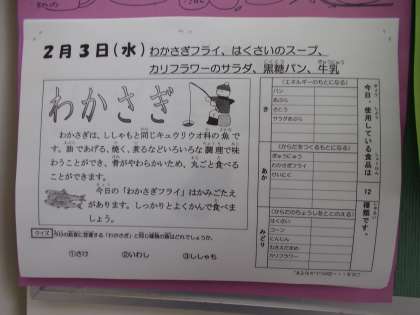 2月3日(水) わかさぎフライ、はくさいのスープ、
カリフラワーのサラダ、黒糖パン、牛乳
わかさぎ
わかさぎは、ししゃもと同じキュウリウオ科の魚で
す。油であげる、焼く、煮るなどいろいろな調理で味
わうことができ、骨がやわらかいため、丸ごと食べる
ことができます。
今日の「わかさぎフライ」はかみごたえ
があります。しっかりとよくかんで食べま
しょう。
クイズ
①さけ ②いわし ③ししゃも
今日、使用している食品は
12
種類です。
き
(エネルギーのもとになる)
パン
あぶら
さとう
サラダあぶら
あか
(からだをつくるもとになる)
ぎゅうにゅう
わかさぎフライ
みどり
(からだのちょうしをととのえる)
はくさい
コーン
にんじん
カリフラワー